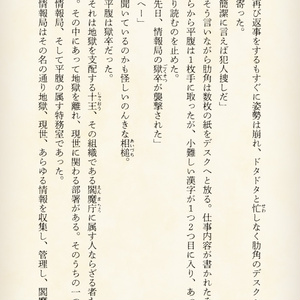 再び返事をするもすぐに姿勢は崩れ、ドタドタと忙しなく肋角のデスク
寄った。
簡潔に言えば犯人捜しだ」
そう言いながら肋角は数枚の紙をデスクへと放る。仕事内容が書かれた
らから平腹は1枚手に取ったが、小難しい漢字が1つ2つ目に入り、あの
り読むのを止めた。
先日、情報局の獄卒が襲撃された」
へー」
聞いているのかも怪しいのんきな相槌。
平腹は獄卒だった。
それは地獄を支配する十王、その組織である閻魔庁に属す人ならざる者た
。その中にあって地獄を離れ、現世に関わる部署がある。そのうちの一つ
情報局、そして平腹の属す特務室であった。
情報局はその名の通り地獄、現世、あらゆる情報を収集し、管理し、閻魔